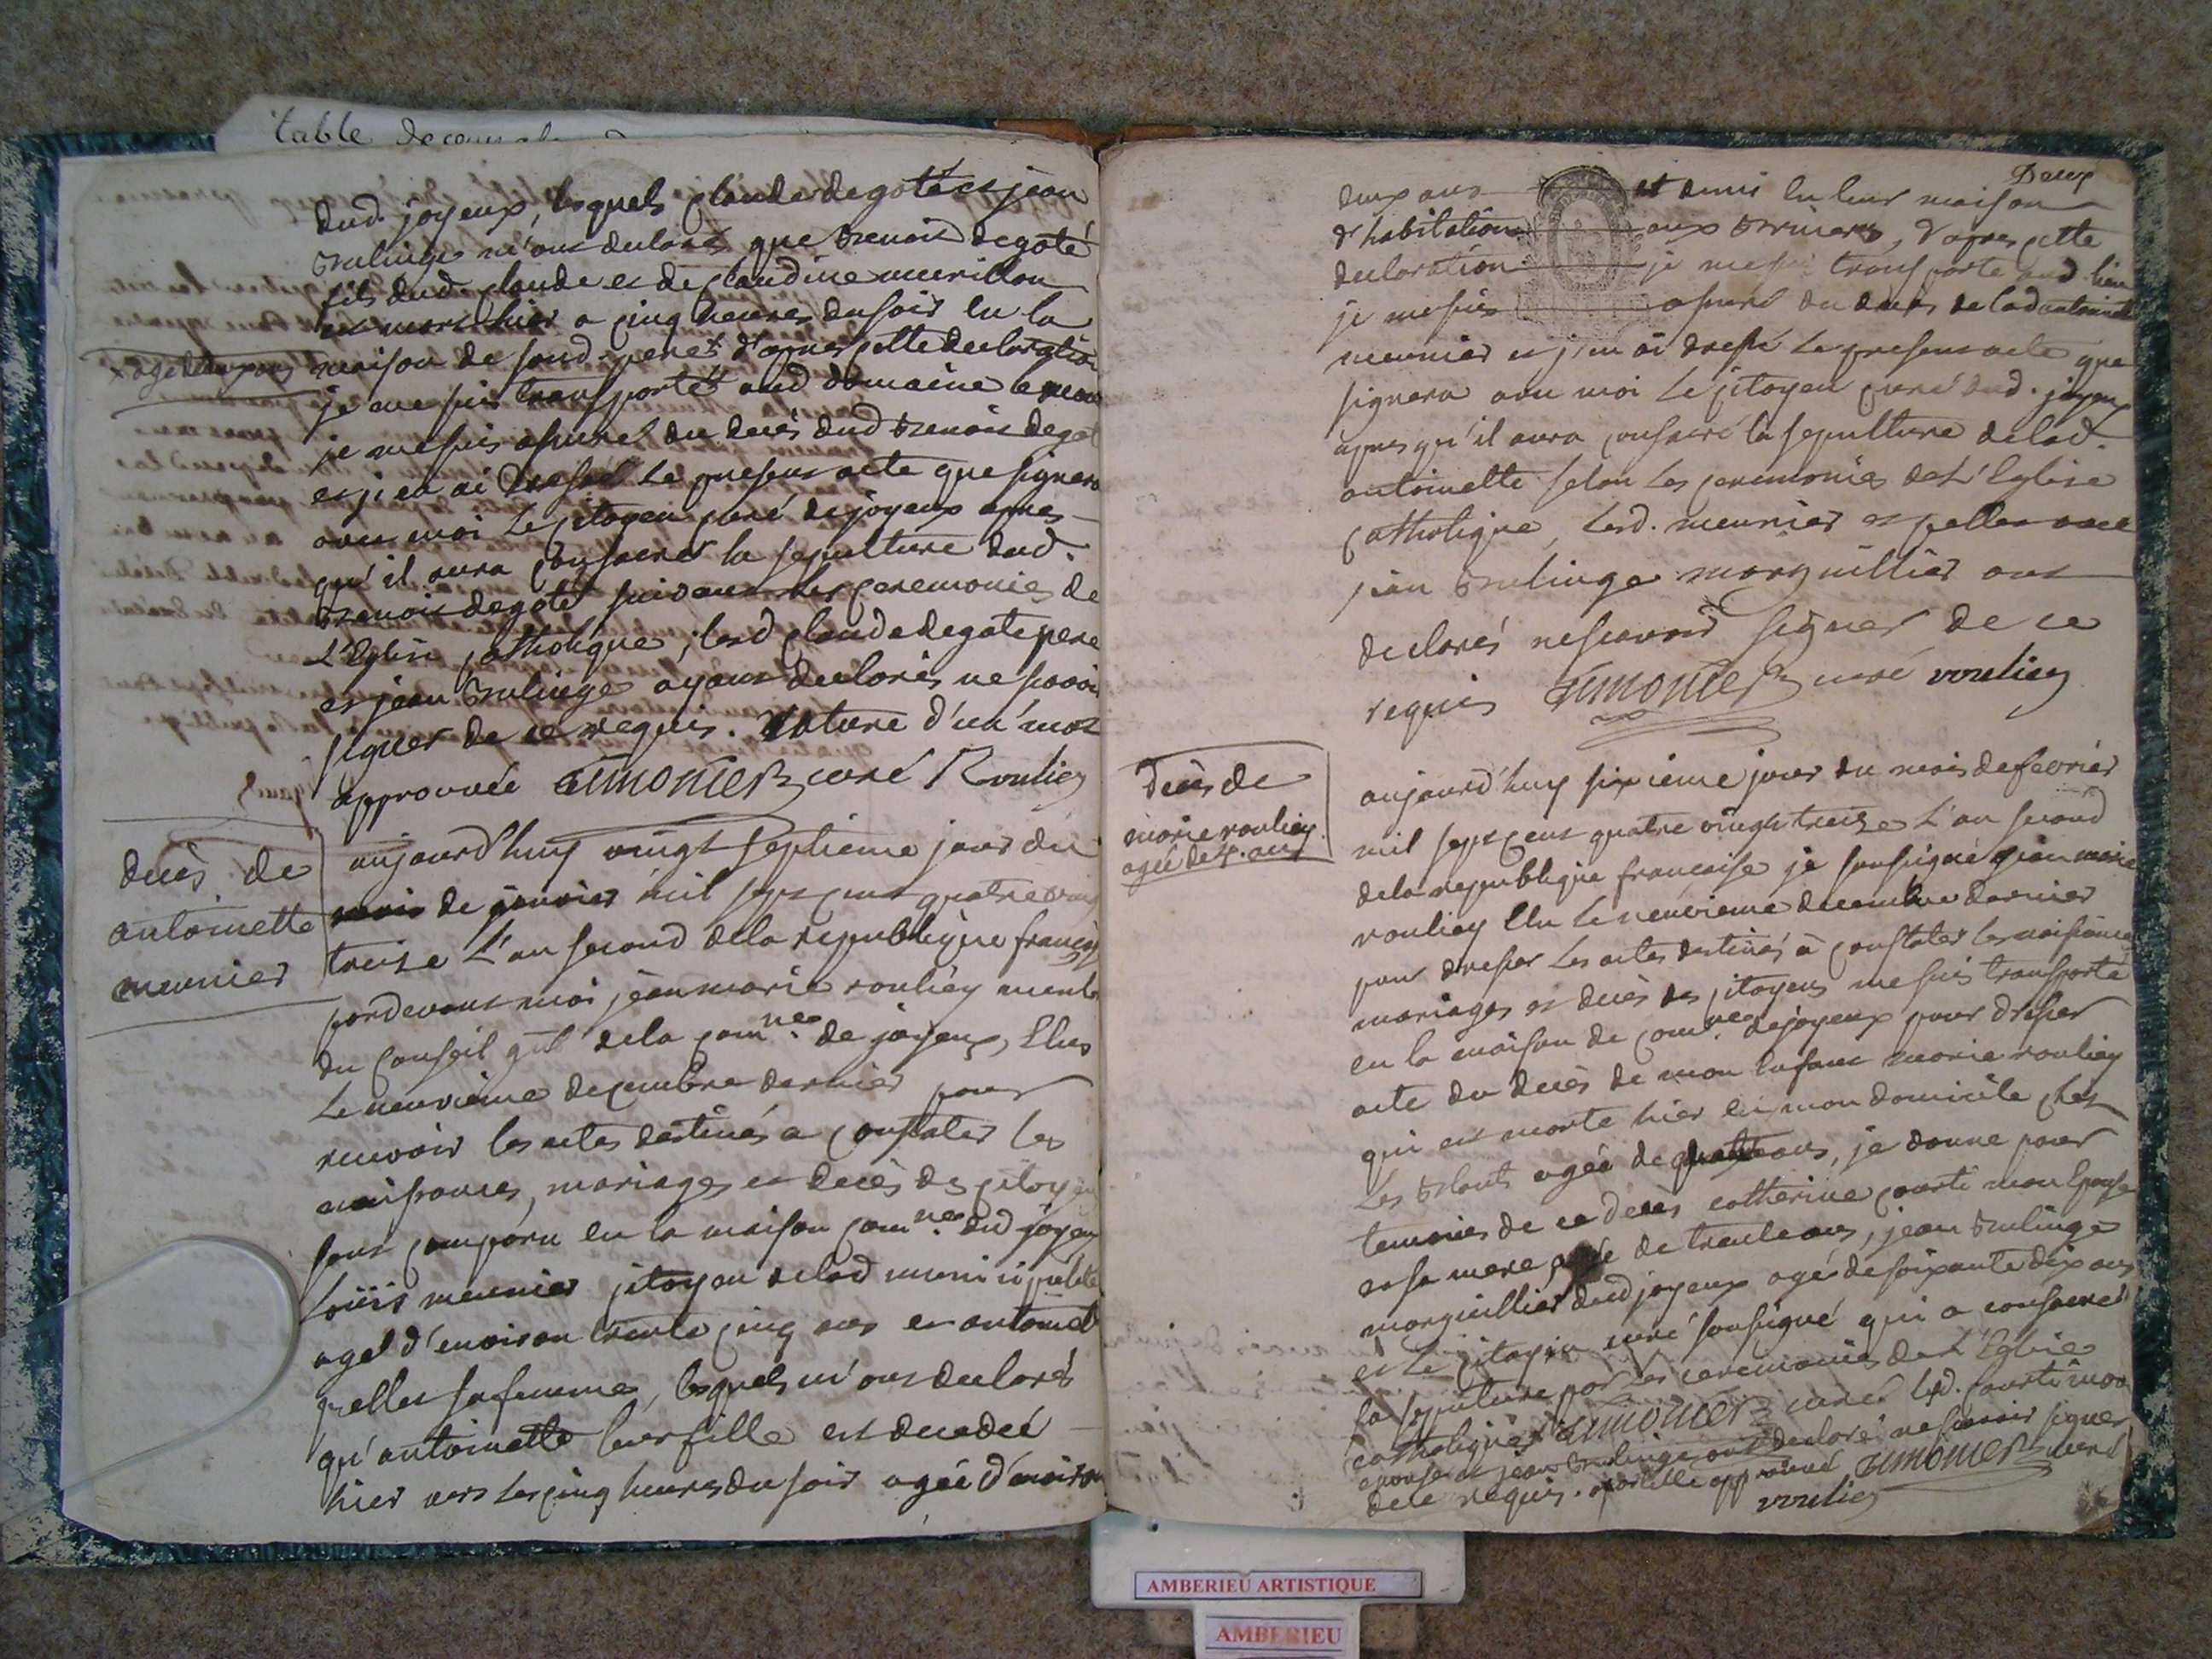 table
dud. joyeux, lesquels claude degoté et jean
Brulinge m'ont declaré que Benoit degoté
fils dud. claude et de claudine meurillon
est mort hier a cinq heures du soir en la
maison de sond. pere x d'apres cette declaration
x agé deux ans
je me suis transporté aud domaine
je me suis assuré du decès dud Benoit degot
et j'en ai dressé le present acte que signera
avec moi le citoyen curé de joyeux apres
qu'il aura consacré la sepulture dud.
Benoit degoté suivant les ceremonies de
L'Eglise catholique ; lesd claude degote pere
et jean Brulinge ayant declarés ne savoir
signer de ce requis. rature d'un mot
approuvée Simonier curé Rouliey
decès de
antoinette
meunier
aujourd'huy vingt septieme jour du
mois de janvier mil sept cent quatre ving
treize L'an second de la republique français
pardevant moi jean marie rouliey memb
du conseil gñl de la comne. de joyeux, Elus
Le neuvieme decembre dernier pour
recevoir les actes destinés a constater les
naissances, mariages et decès des citoy
sont comparu en la maison comne. dud joyeux
Loüis meunier citoyen de lad municipalité
agé d'environ trente cinq ans et antoinet
pellet sa femme, lesquels m'ont declaré
qu'antoinette leur fille est decedeé
hier vers les cinq heures du soir agée d'environ
Deux
deux ans et demi en leur maison
d'habitation aux , d'apres cette
declaration je me suis transporté aud. lieu
je me suis assuré du decès de lad antoinette
meunier et j'en ai dressé le present acte que
signera avec moi le citoyen curé dud. joyeux
apres qu'il aura consacré la sepulture de lad.
antoinette selon les ceremonies de L'Eglise
catholique, lesd. meunier et pellet avec
jean Brulinge marguillier ont
declarés ne savoir signer de ce
requis Simonier curé rouliey
decès de
marie rouliey
agée de 4. ans
aujourd'huy sixieme jour du mois de fevrier
mil sept cent quatre vingt treize L'an second
de la republique française je soussigné jean marie
rouliey Elu le neuvieme decembre dernier
pour dresser les actes destinés à constater les naissances
mariages et decès des citoyens me suis transporté
en la maison de comne. de joyeux pour dresser
acte du decès de mon enfant marie rouliey
qui est morte hier en mon domicile chez
les Blants agée de quatre ans, je donne pour
temoins de ce deces catherine courti mon Epouse
et sa mere agée de trente ans, jean Brulinge
marguillier dud joyeux agé de soixante dix ans
et Le citoyen curé soussigné qui a consacré
la sepulture par les ceremonies de L'Eglise
catholique Simonier curé lesd. Courti mon
epouse et jean Brulinge ont declaré ne savoir signer
de ce requis. approuvé Simonier curé
rouliey
AMBERIEU ARTISTIQUE
AMBERIEU